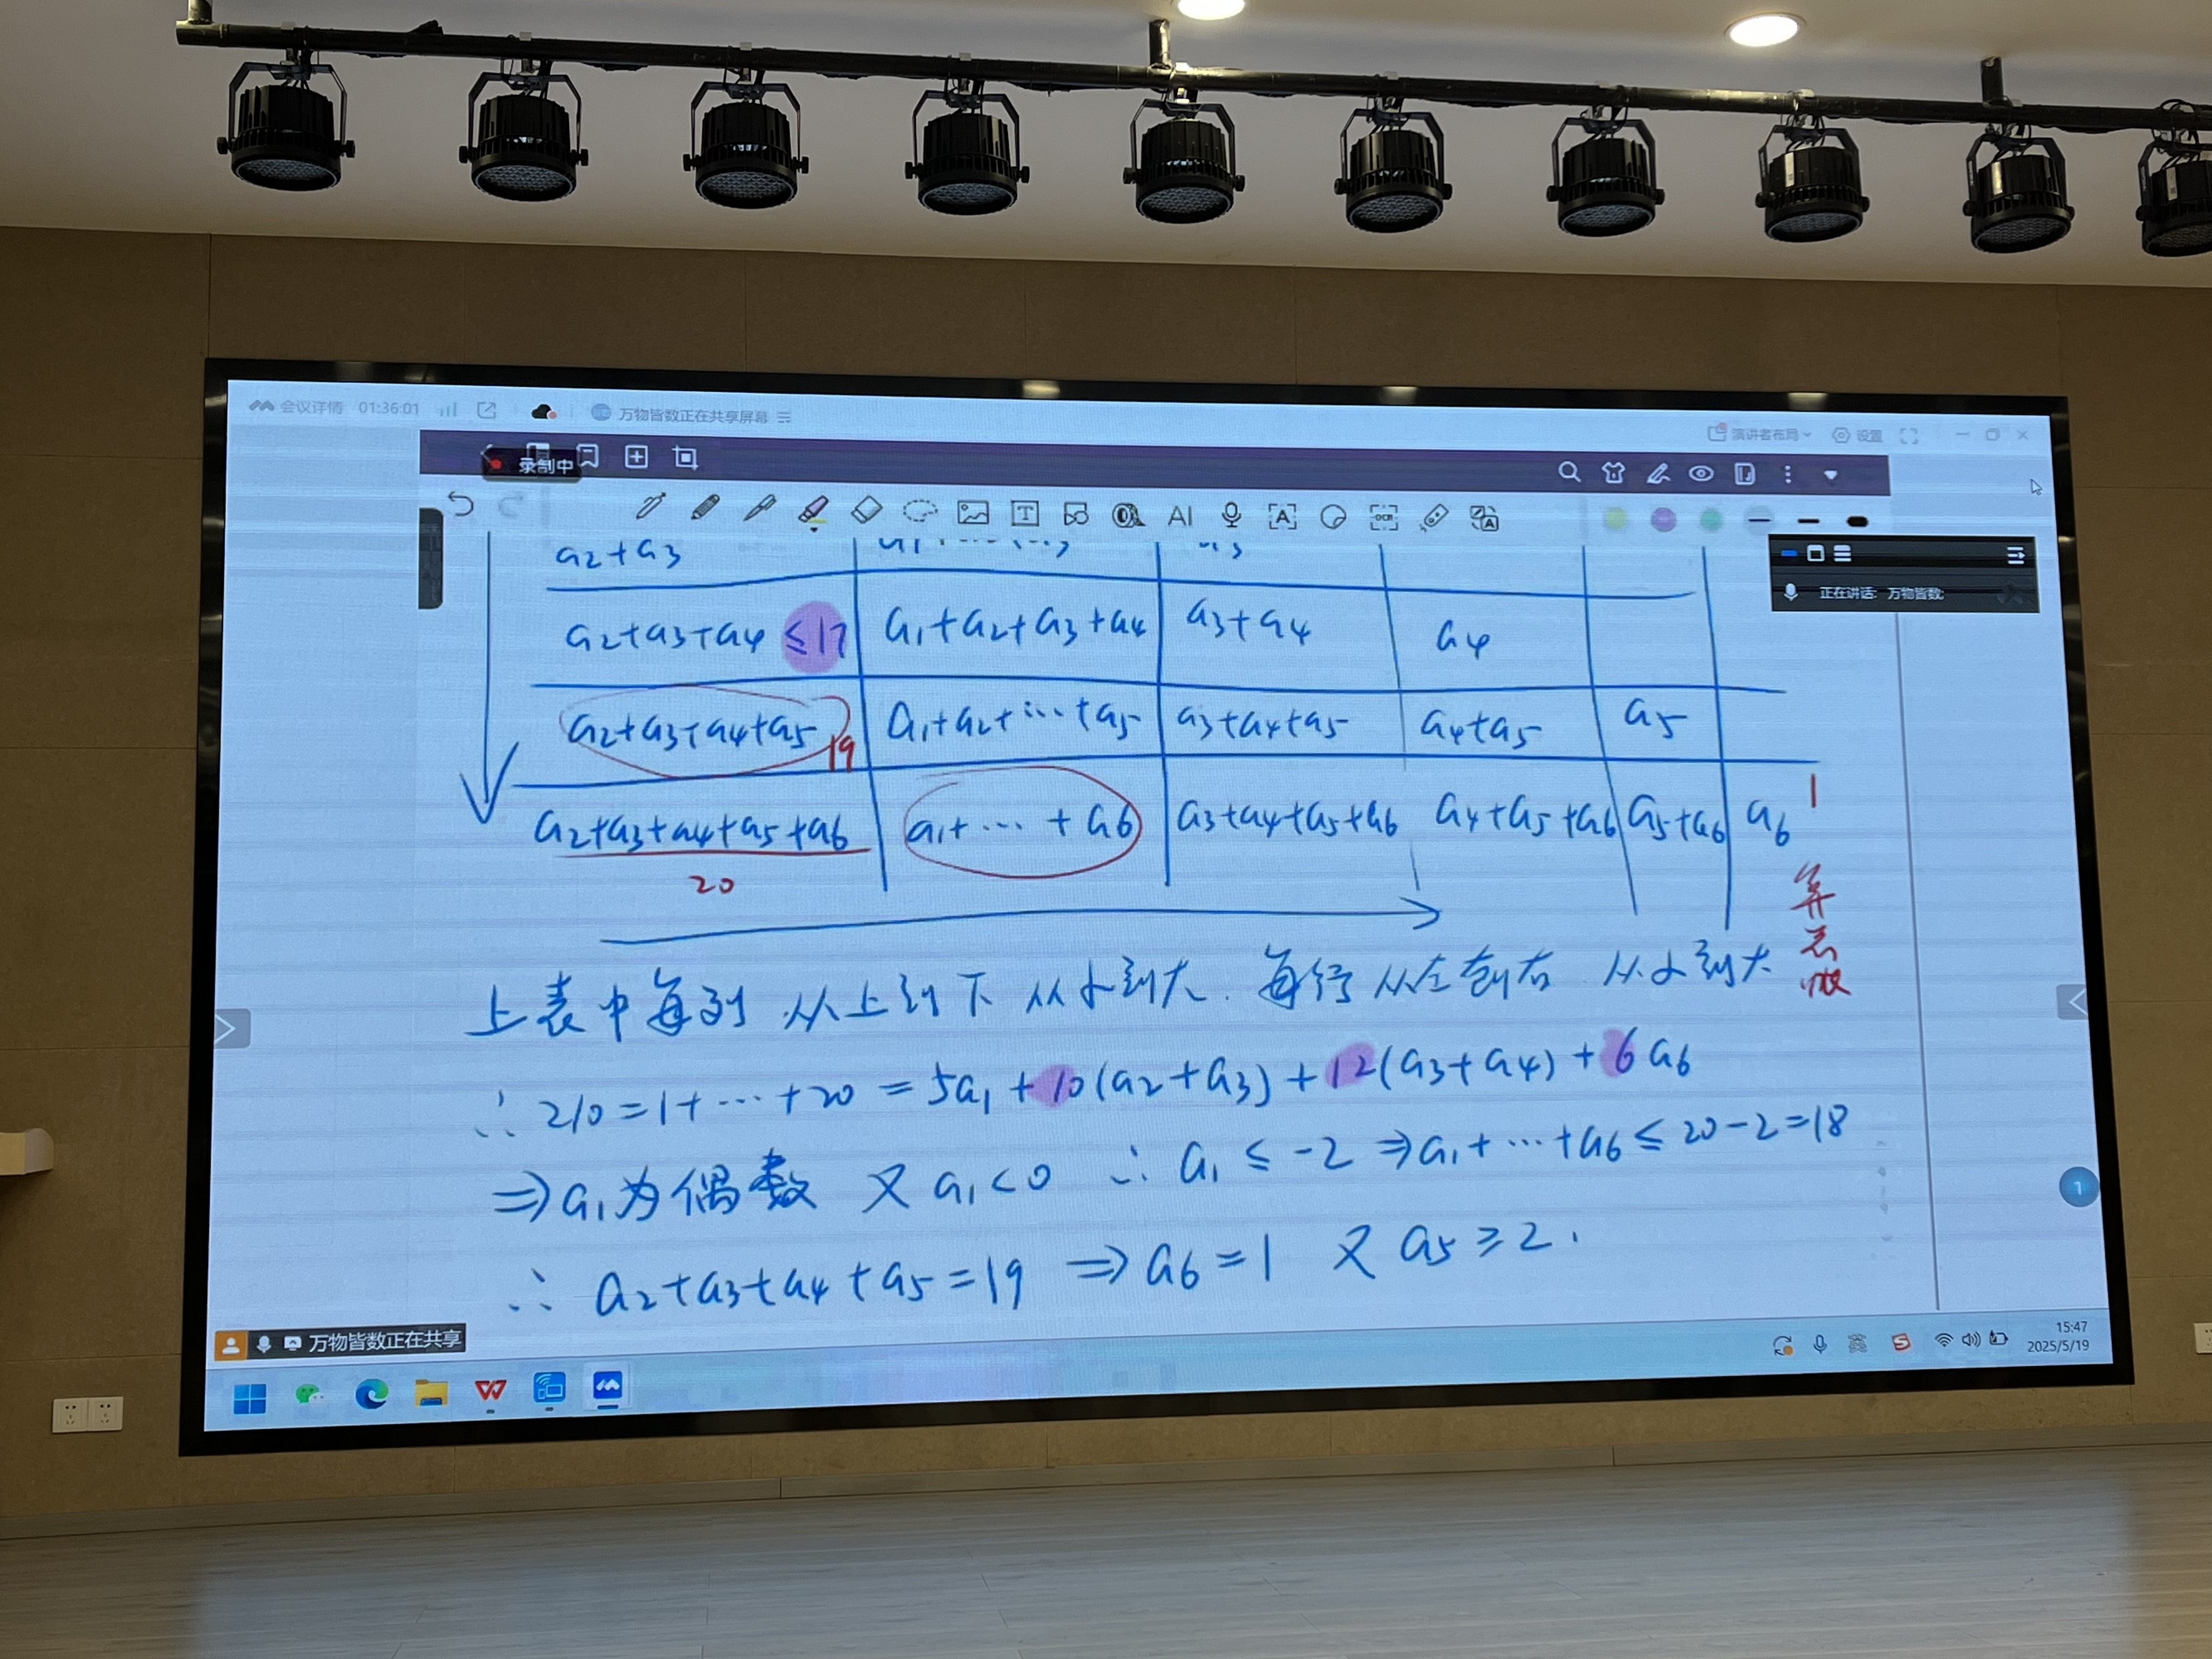 会议详情 01:36:01 万物皆数正在共享屏幕
演讲者布局 设置
录制中
T AI A OCR A
正在讲话: 万物皆数;
a2+a3
a3
a2+a3+a4 ≤17 a1+a2+a3+a4 a3+a4 a4
a2+a3+a4+a5 19 a1+a2+…+a5 a3+a4+a5 a4+a5 a5
a2+a3+a4+a5+a6 a1+…+a6 a3+a4+a5+a6 a4+a5+a6 a5+a6 a6 1
20
算
上表中每列 从上到下 从小到大. 每行 从左到右 从小到大
∴ 210=1+…+20 = 5a1+10(a2+a3)+12(a3+a4)+6a6
⇒a1为偶数 又 a1<0 ∴ a1 ≤ -2 ⇒a1+…+a6 ≤ 20-2=18
∴ a2+a3+a4+a5=19 ⇒a6=1 又 a5≥2.
1
万物皆数正在共享
15:47
2025/5/19